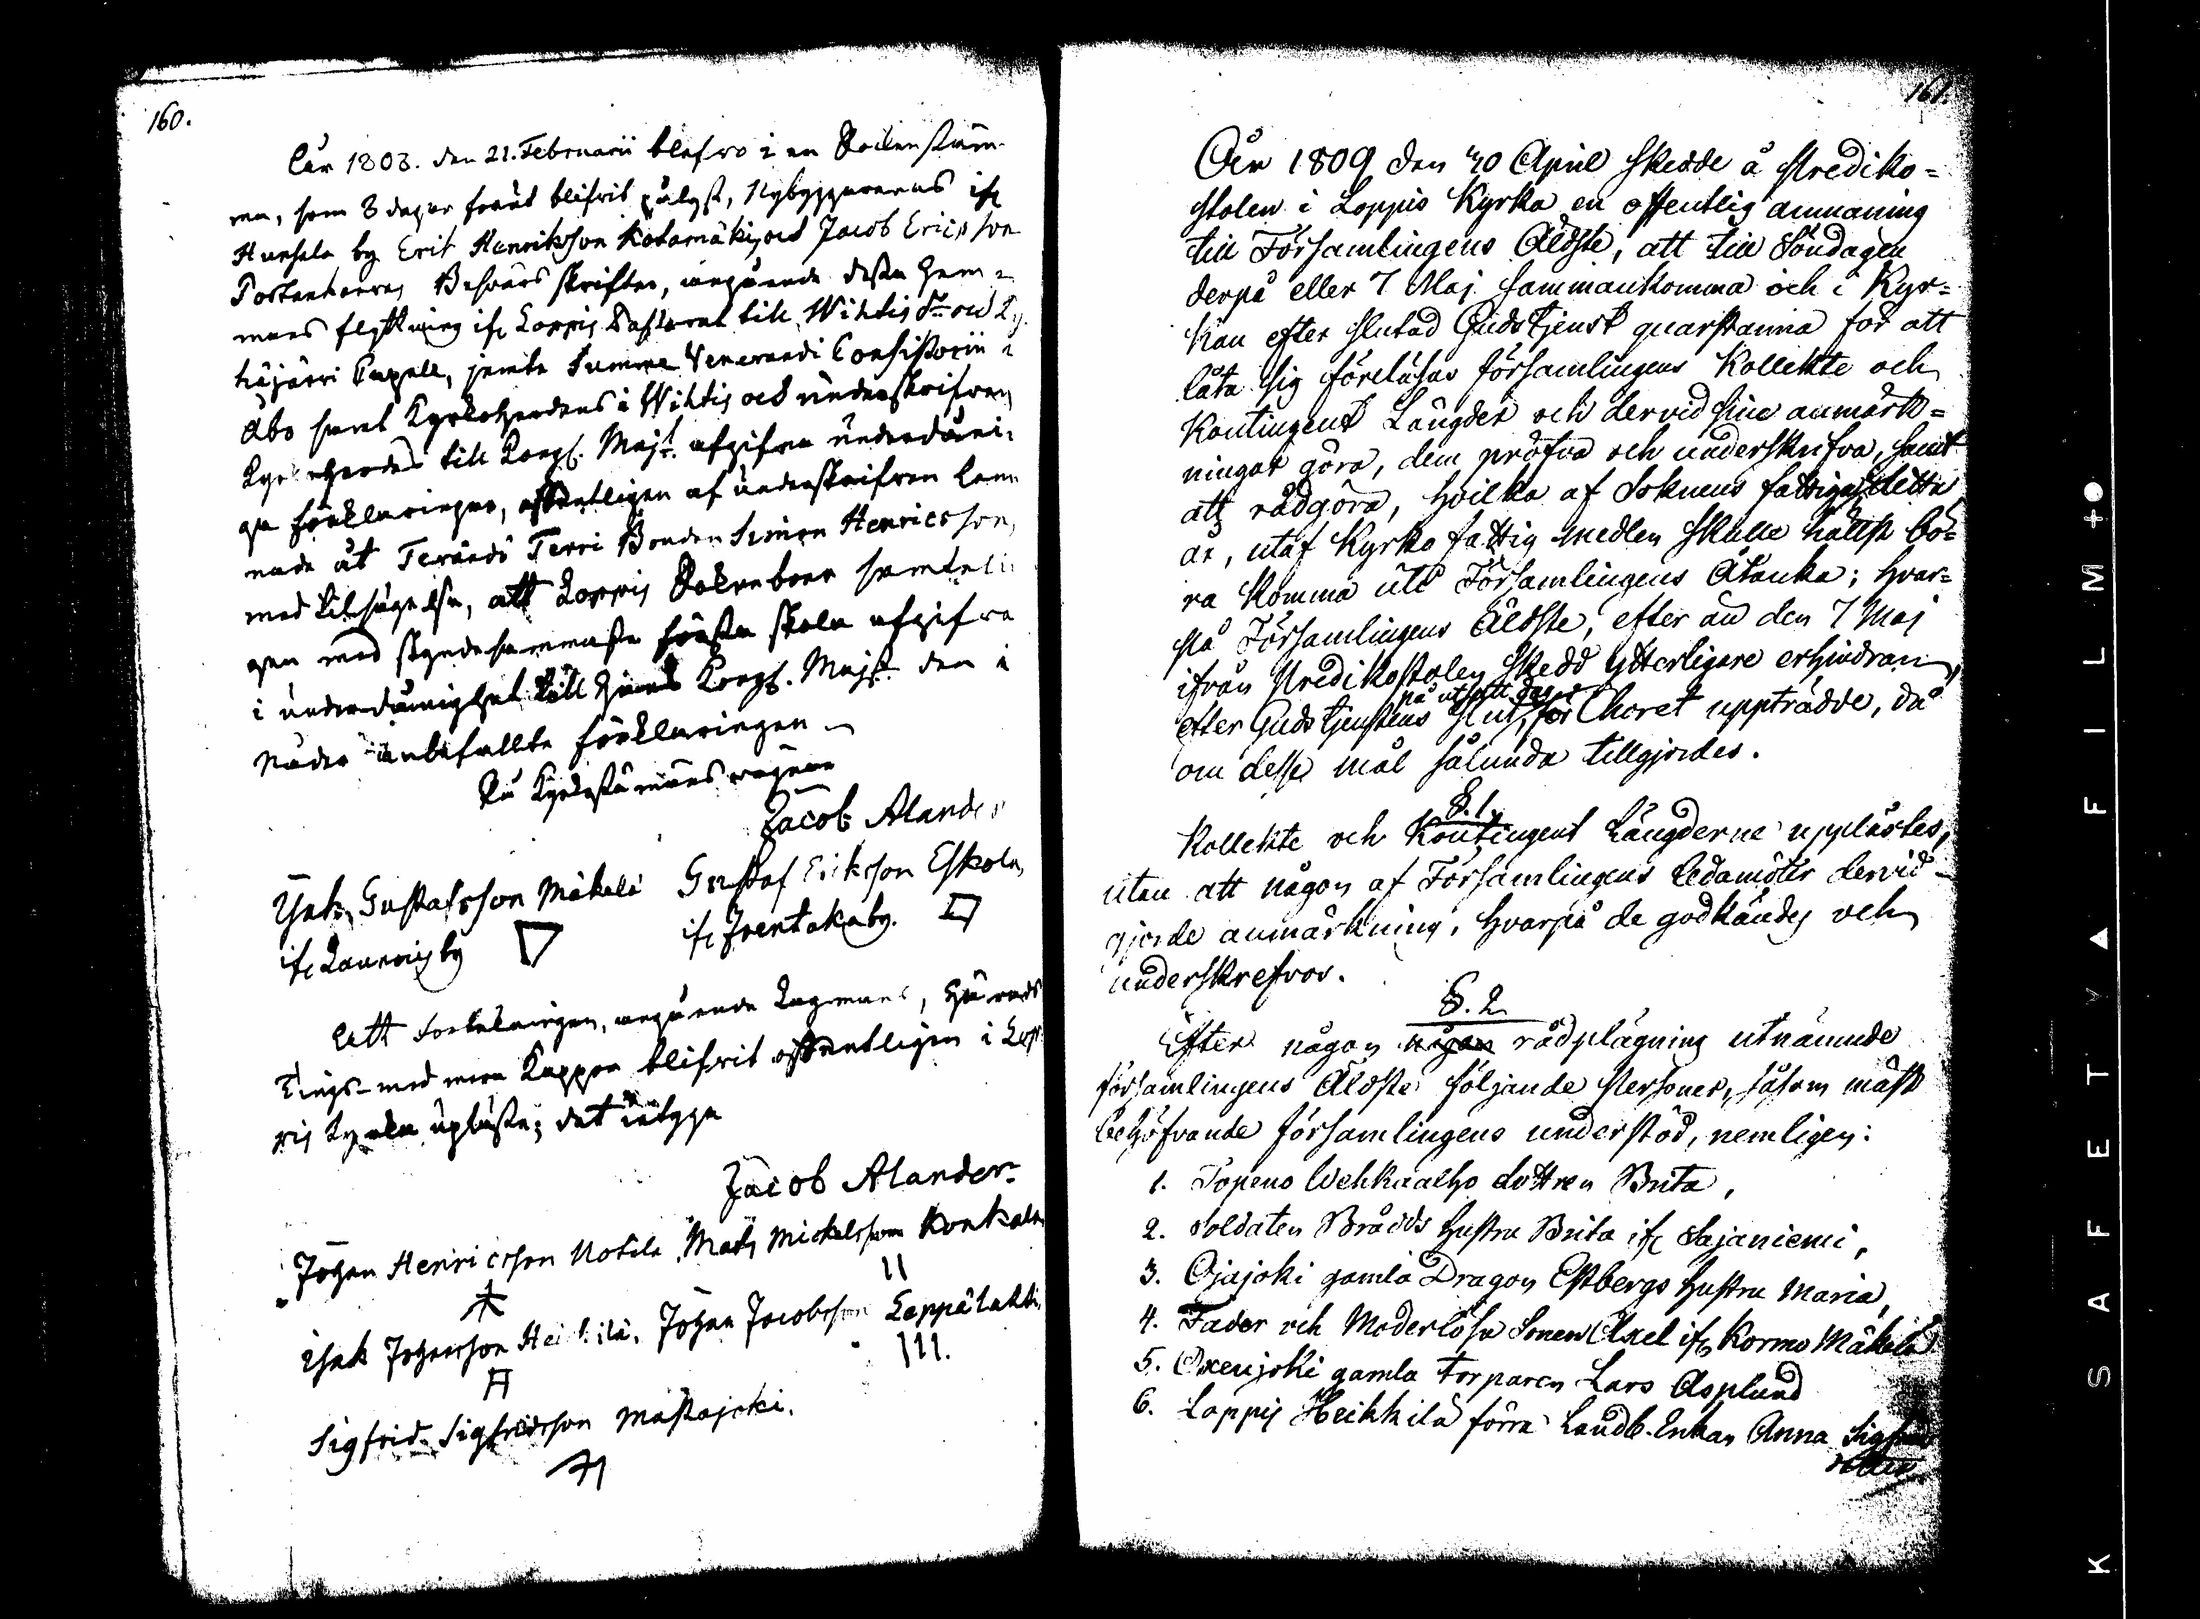 160.
År 1808. den 21. Februarii blefwo i en Sockenstäm-
ma, som 8 dagar förut blifwit pålyst, Nybyggarenas if.
Hunsala by Erik Henriksson Kotamäki, och Jacob Ericsson
Besvärs skrifter, angående dessa hem-
mans flyttning if. Loppis Pastorat till Wihtis Sn och Py-
häjärvi Capell, jemte Summe Venerandi Consistorii i
Åbo samt Kyrkoherdens i Wihtis och underskrifven
Kyrkoherdes till Kongl. Majt. afgifna underdåni-
ga förklaringar, offentligen af underskrifven läm-
nade åt Terändö Terri Bonden Simon Henricsson,
med tilsägelse, att Loppis Sokneboer samteli-
gen med skyndesammaste första skola afgifva
i underdånighet till Hans Kongl. Majt. den i
Nåder anbefallte förklaringen.
På Kyrkostämmans wägnar
Jacob Alander
Isak Gustafsson Mäkelä Gustaf Eriksson Eskola,
if. Launois by if. Joentaka by.
Att forteckningen, angående Lagmans, Härads
Tings- med mera Kappar blifvit offentligen i Lop-
pis Kyrka upläste; det intyga
Jacob Alander
Johan Henricsson Uotila Mats Mickelsson Konkala
II
Isak Johansson Heikkilä. Johan Jacobsson Leppälahti,
III.
Sigfrid Sigfridsson Mustajoki.
161.
År 1809 den 30 April skedde å Prediko-
stolen i Loppis Kyrka en offentlig anmaning
till Församlingens Äldste, att till Söndagen
derpå eller 7 Maj sammankomma och i Kyr-
kan efter slutad Gudstjenst quarstanna för att
låta sig föreläsas församlingens Kollekte och
Kontingent Längder och dervid sine anmärk-
ningar göra, dem pröfva och underskrifva, samt
att rådgöra, hvilka af Soknens fattiga detta
år, utaf Kyrko fattig medlen skulle hälst bö-
ra komma uti Församlingens Åtanka; hvar-
på Församlingens Äldste, efter än den 7 Maj
ifrån Predikostolen skedd ytterligare erhindran,
på utsatt dag
efter Gudstjenstens slut, för Choret uppträdde, då
om desse mål sålunda tillgjordes.
§. 1.
Kollekte och Kontingent Längderne upplästes,
utan att någon af Församlingens Ledamöter dervid
gjorde anmärkning, hvarpå de godkändes och
underskrefvos.
§. 2
Efter någon någon rådplägning utnämnde
församlingens Äldste följande Personer, såsom mäst
behöfvande församlingens understöd, nemligen:
1. Topeno Wehkaalho dottren Brita,
2. Soldaten Brådds hustru Brita if. Sajaniemi,
3. Ojajoki gamla Dragon Estbergs hustru Maria,
4. Fader och Moderlösa Sonen Axel if. Kormo Mäkelä
5. Oxenjoki gamla torparen Lars Asplund
6. Loppis Heikkilä förra Landb. Enkan Anna Sigfrids
dotter
K SAFETY ▲ FILM